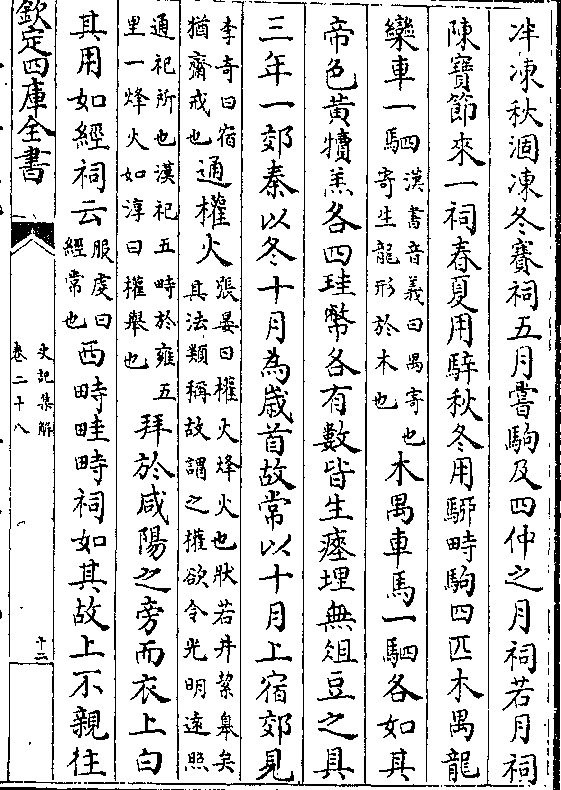 泮凍秋涸凍冬賽祠五月嘗駒及四仲之月祠若月祠
陳寶節來一祠春夏用騂秋冬用駵畤駒四匹木禺龍
欒車一駟漢書音義曰禺寄也
寄生龍形於木也木禺車馬一駟各如其
帝色黃犢羔各四珪幣各有數皆生瘞埋無俎豆之具
三年一郊秦以冬十月為歲首故常以十月上宿郊見
李奇曰宿
猶齋戒也通權火張晏曰權火烽火也狀若井絜皋矣
其法類稱故謂之權欲令光明遠照
通祀所也漢祀五畤於雍五
里一烽火如淳曰權舉也拜於咸陽之旁而衣上白
其用如經祠云服虔曰
經常也西畤畦畤祠如其故上不親往
欽定四庫全書
史記集解
卷二十八
十二